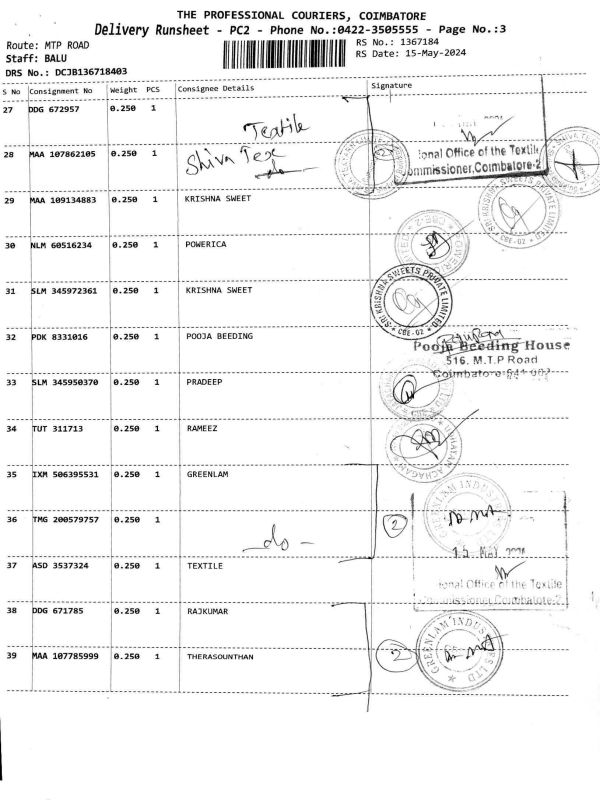 THE PROFESSIONAL COURIERS, COIMBATORE
Delivery Runsheet - PC2 - Phone No.:0422-3505555 - Page No.:3
Route: MTP ROAD
RS No.: 1367184
Staff: BALU
RS Date: 15-May-2024
DRS No.: DCJB136718403
S No Consignment No Weight PCS Consignee Details Signature
27 DDG 672957 0.250 1 Textile
28 MAA 107862105 0.250 1 Shiva Tex
-do-
ional Office of the Textile
ommissioner,Coimbatore-2
29 MAA 109134883 0.250 1 KRISHNA SWEET
SRI KRISHNA SWEETS PRIVATE LIMITED
CBE-02
30 NLM 60516234 0.250 1 POWERICA
31 SLM 345972361 0.250 1 KRISHNA SWEET
SRI KRISHNA SWEETS PRIVATE LIMITED
CBE-02
32 PDK 8331016 0.250 1 POOJA BEEDING
Pooja Beeding House
516. M.T.P Road
Coimbatore-641 002
33 SLM 345950370 0.250 1 PRADEEP
34 TUT 311713 0.250 1 RAMEEZ
35 IXM 506395531 0.250 1 GREENLAM
GREENLAM INDUS
36 TMG 200579757 0.250 1 -do-
2
15 MAY
37 ASD 3537324 0.250 1 TEXTILE
ional Office of the Textile
mmissioner,Coimbatore-2
38 DDG 671785 0.250 1 RAJKUMAR
39 MAA 107785999 0.250 1 THERASOUNTHAN
2
GREENLAM INDUS